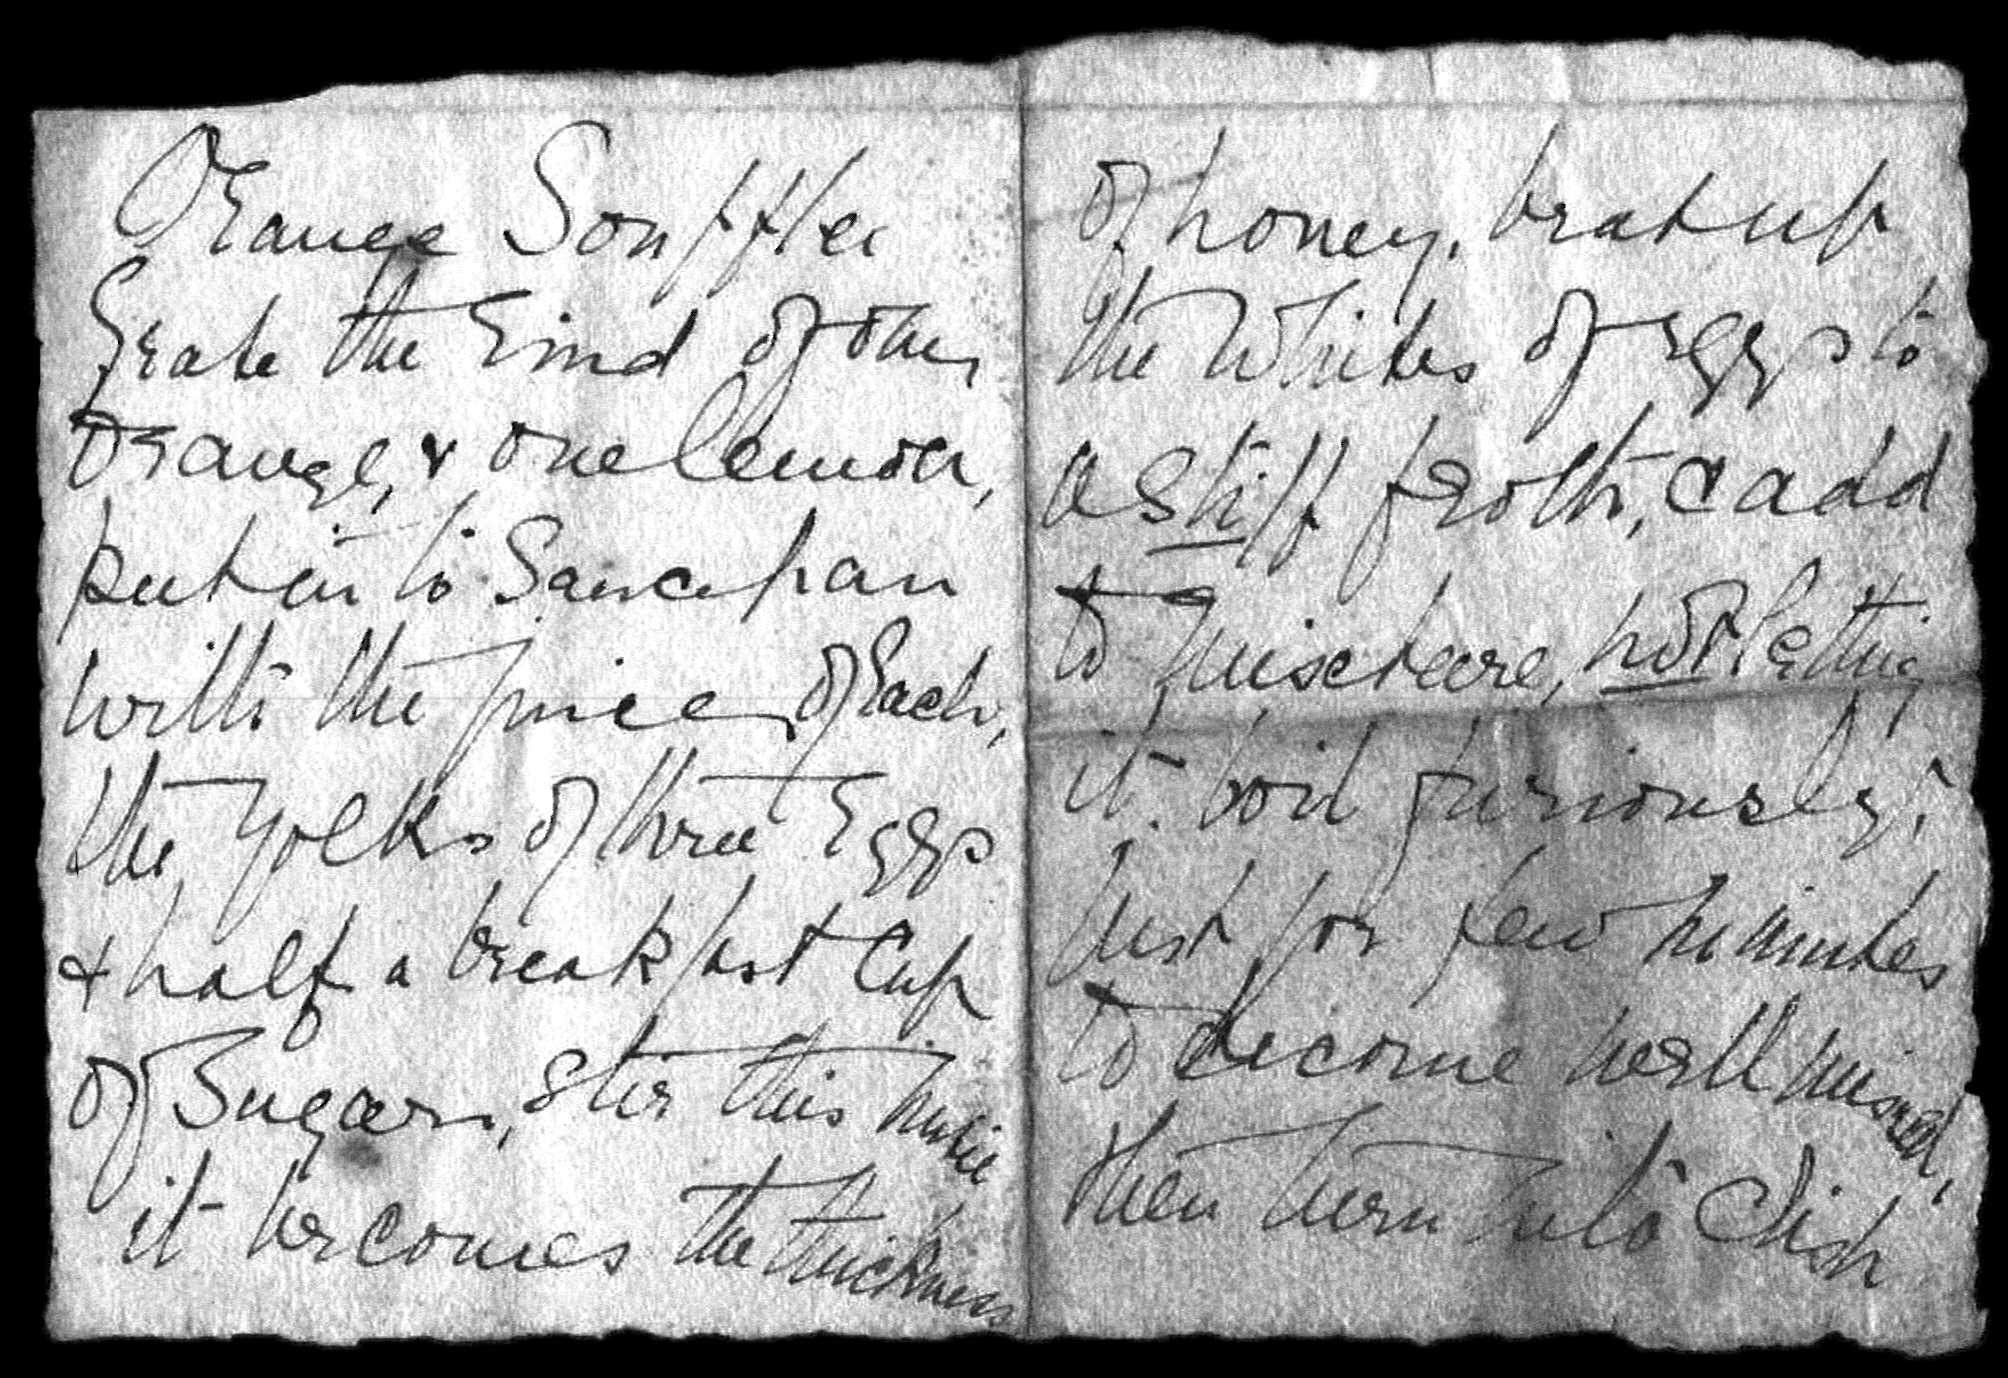 Orange Souffler
Grate the rind of one
orange, & one lemon,
put in to Saucepan
with the juice of Each,
the yolks of three Eggs
& half a breakfast Cup
of Sugar, stir this until
it becomes the thickness
of honey, beat up
the Whites of eggs to
a stiff froth, & add
to mixture, not letting
it boil furiously;
Just for few minutes
to become well mixed,
then turn into dish